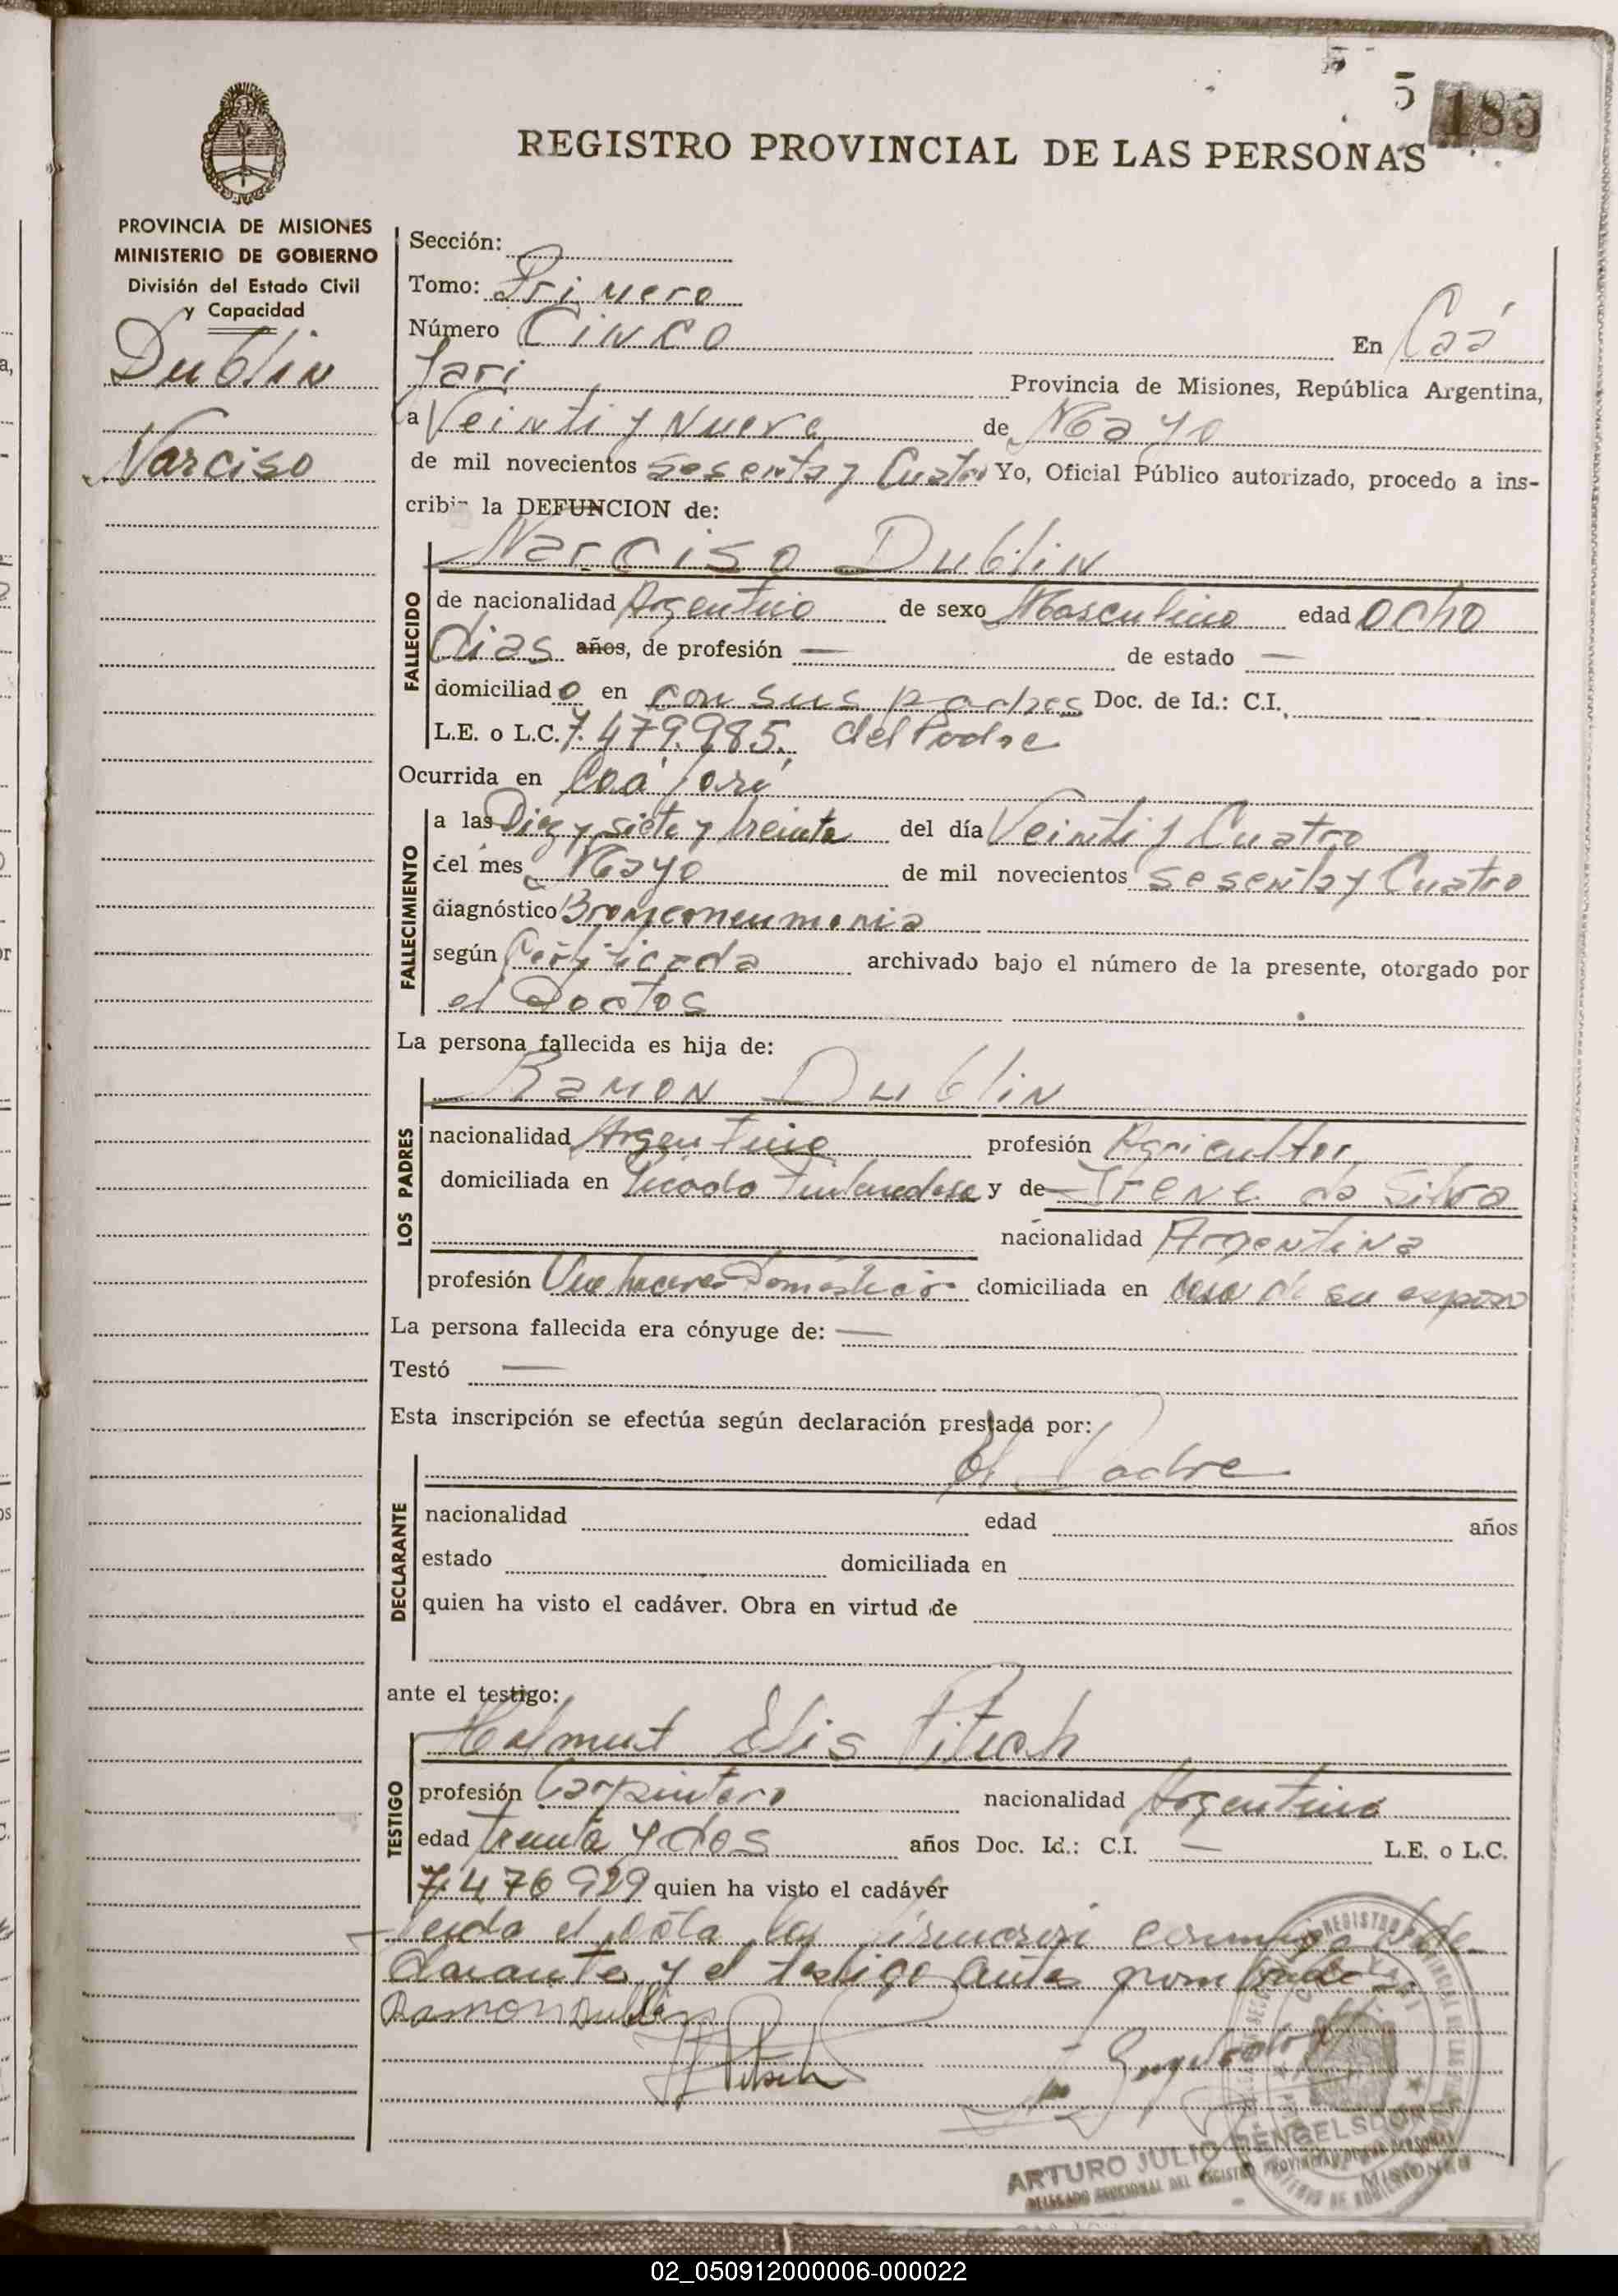 5 185
REGISTRO PROVINCIAL DE LAS PERSONAS
PROVINCIA DE MISIONES
MINISTERIO DE GOBIERNO
División del Estado Civil
y Capacidad
Dublin
Narciso
Sección:
Tomo: Primero
Número Cinco En Caá
Yari Provincia de Misiones, República Argentina,
a Veinti y Nueve de Mayo
de mil novecientos Sesenta y Cuatro Yo, Oficial Público autorizado, procedo a ins-
cribir la DEFUNCION de:
Narciso Dublin
FALLECIDO
de nacionalidad Argentino de sexo Masculino edad Ocho
Dias años, de profesión — de estado —
domiciliado en con sus padres Doc. de Id.: C.I.
L.E. o L.C. 7.479.985. del Padre
Ocurrida en Caá Yari
FALLECIMIENTO
a las Diez y siete y treinta del día Veinti y Cuatro
del mes Mayo de mil novecientos Sesenta y Cuatro
diagnóstico Bronconeumonia
según Certificado archivado bajo el número de la presente, otorgado por
el Doctor
La persona fallecida es hija de:
Ramon Dublin
LOS PADRES
nacionalidad Argentino profesión Agricultor
domiciliada en Picada Finlandesa y de Irene da Silva
nacionalidad Argentina
profesión Que haceres Domesticos domiciliada en casa de su esposo
La persona fallecida era cónyuge de: —
Testó —
Esta inscripción se efectúa según declaración prestada por:
el Padre
DECLARANTE
nacionalidad edad años
estado domiciliada en
quien ha visto el cadáver. Obra en virtud de
ante el testigo:
Helmut Elis Pitsch
TESTIGO
profesión Carpintero nacionalidad Argentino
edad treinta y dos años Doc. Id.: C.I. — L.E. o L.C.
7.476929 quien ha visto el cadáver
Leida el acta la firmaron conmigo el de-
clarante y el testigo antes nombrado
Ramon Dublin
Pitsch
ARTURO JULIO ENGELSDORF
DELEGADO SECCIONAL DEL REGISTRO PROVINCIAL DE LAS PERSONAS
MISIONES
02_050912000006-000022